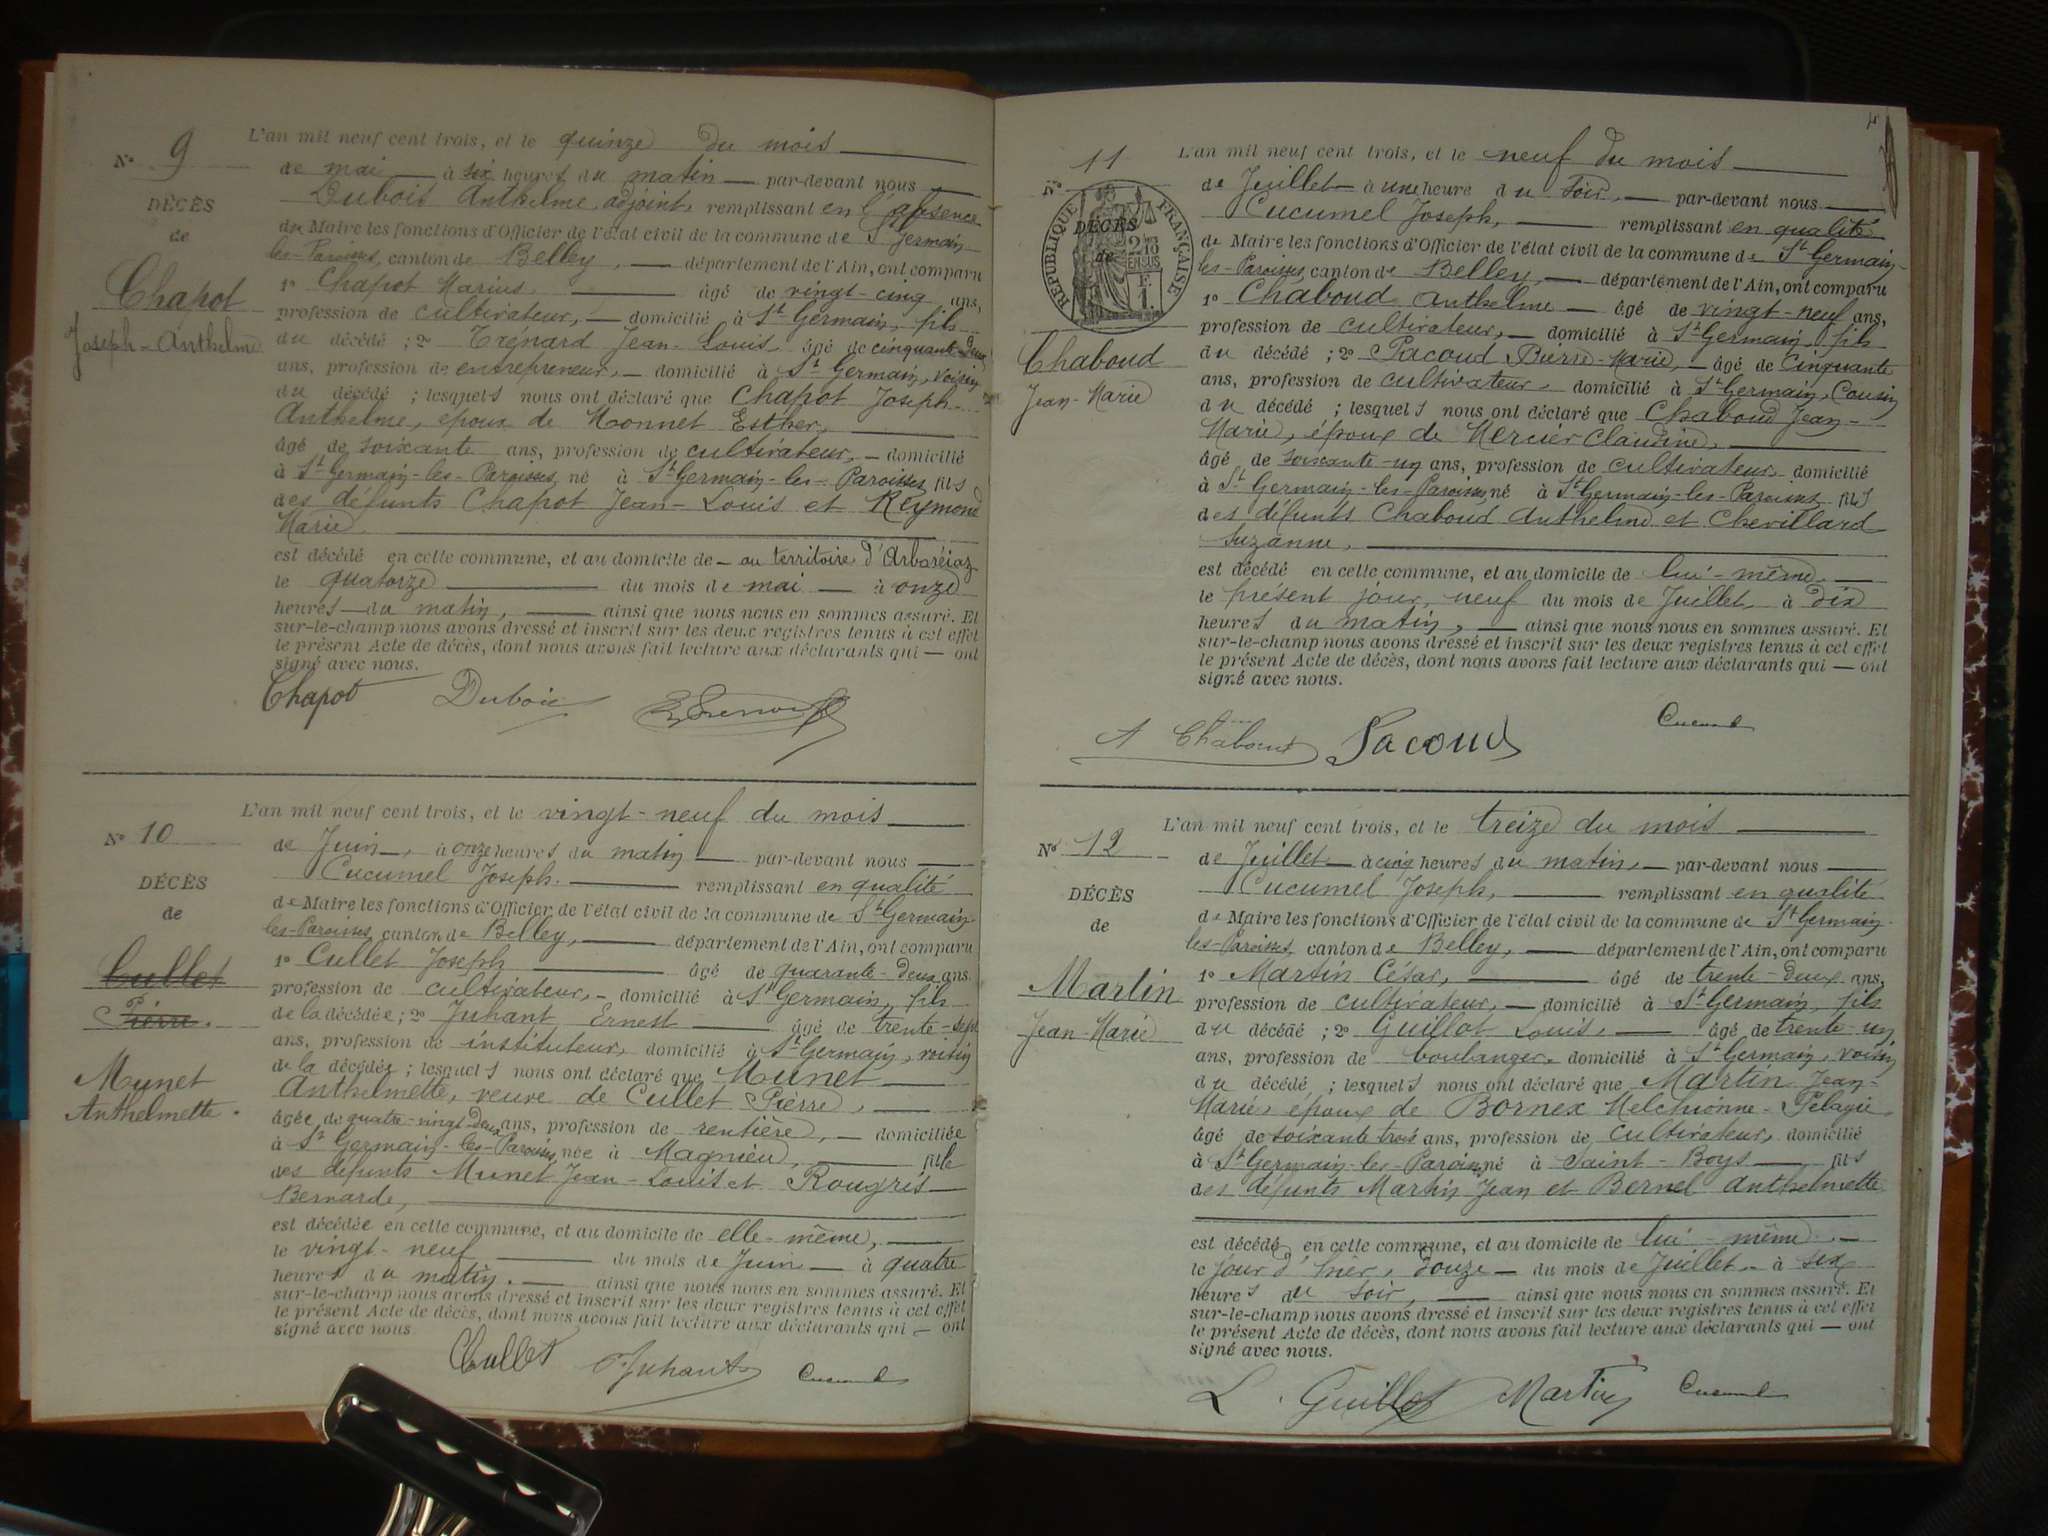 L'an mil neuf cent trois, et le quinze du mois
N° 9
de mai à six heures du matin par-devant nous
DÉCÈS
Dubois Anthelme adjoint, remplissant en l'absence
de
du Maire les fonctions d'Officier de l'état civil de la commune de St Germain-
les-Paroisses, canton de Belley, département de l'Ain, ont comparu
Chapot
1° Chapot Marius âgé de vingt-cinq ans,
profession de cultivateur, domicilié à St Germain, fils
Joseph-Anthelme
du décédé ; 2° Trénard Jean-Louis âgé de cinquante-deux
ans, profession de entrepreneur, domicilié à St Germain, voisin
du décédé ; lesquels nous ont déclaré que Chapot Joseph-
Anthelme, époux de Monnet Esther,
âgé de soixante ans, profession de cultivateur, domicilié
à St Germain-les-Paroisses, né à St Germain-les-Paroisses, fils
des défunts Chapot Jean-Louis et Reymond
Marie
est décédé en cette commune, et au domicile de au territoire d'Arboréiaz
le quatorze du mois de mai à onze
heures du matin, ainsi que nous nous en sommes assuré. Et
sur-le-champ nous avons dressé et inscrit sur les deux registres tenus à cet effet
le présent Acte de décès, dont nous avons fait lecture aux déclarants qui ont
signé avec nous.
Chapot Dubois
L'an mil neuf cent trois, et le vingt-neuf du mois
N° 10
de Juin, à onze heures du matin par-devant nous
Cucumel Joseph. remplissant en qualité
DÉCÈS
de Maire les fonctions d'Officier de l'état civil de la commune de St Germain
de
les-Paroisses, canton de Belley, département de l'Ain, ont comparu
Cullet
1° Cullet Joseph âgé de quarante-deux ans
profession de cultivateur, domicilié à St Germain, fils
Pierre.
de la décédée ; 2° Juhant Ernest âgé de trente-sept
ans, profession de instituteur, domicilié à St Germain, voisin
Munet
de la décédée ; lesquels nous ont déclaré que Munet
Anthelmette.
Anthelmette, veuve de Cullet Pierre,
âgée de quatre-vingt-deux ans, profession de rentière, domiciliée
à St Germain-les-Paroisses, née à Magnieu, fille
des défunts Munet Jean-Louis et Rougris
Bernarde,
est décédée en cette commune, et au domicile de elle-même,
le vingt-neuf du mois de Juin à quatre
heures du matin. ainsi que nous nous en sommes assuré. Et
sur-le-champ nous avons dressé et inscrit sur les deux registres tenus à cet effet
le présent Acte de décès, dont nous avons fait lecture aux déclarants qui ont
signé avec nous
Cullet Juhant Cucumel
L'an mil neuf cent trois, et le neuf du mois
N° 11
de Juillet à une heure du soir, par-devant nous
Cucumel Joseph, remplissant en qualité
RÉPUBLIQUE FRANÇAISE
DÉCÈS
de
2/10 EN SUS
F. 1.
de Maire les fonctions d'Officier de l'état civil de la commune de St Germain-
les-Paroisses, canton de Belley, département de l'Ain, ont comparu
1° Chaboud Anthelme âgé de vingt-neuf ans,
profession de cultivateur, domicilié à St Germain fils
Chaboud
du décédé ; 2° Pacoud Pierre-Marie, âgé de Cinquante
ans, profession de cultivateur, domicilié à St Germain, Cousin
Jean-Marie
du décédé ; lesquels nous ont déclaré que Chaboud Jean-
Marie, époux de Mercier Claudine,
âgé de soixante-un ans, profession de cultivateur, domicilié
à St Germain-les-Paroisses, né à St Germain-les-Paroisses, fils
des défunts Chaboud Anthelme et Chevillard
Suzanne,
est décédé en cette commune, et au domicile de lui-même.
le présent jour, neuf du mois de Juillet, à dix
heures du matin, ainsi que nous nous en sommes assuré. Et
sur-le-champ nous avons dressé et inscrit sur les deux registres tenus à cet effet
le présent Acte de décès, dont nous avons fait lecture aux déclarants qui ont
signé avec nous.
Cucumel
A Chaboud Pacoud
L'an mil neuf cent trois, et le treize du mois
N° 12
de Juillet à cinq heures du matin, par-devant nous
Cucumel Joseph, remplissant en qualité
DÉCÈS
de Maire les fonctions d'Officier de l'état civil de la commune de St Germain-
de
les-Paroisses, canton de Belley, département de l'Ain, ont comparu
1° Martin César, âgé de trente-deux ans,
Martin
profession de cultivateur, domicilié à St Germain, fils
Jean-Marie
du décédé ; 2° Guillot Louis, âgé de trente-un
ans, profession de boulanger, domicilié à St Germain, voisin
du décédé ; lesquels nous ont déclaré que Martin Jean-
Marie, époux de Bornex Melchionne-Pélagie,
âgé de soixante trois ans, profession de cultivateur, domicilié
à St Germain-les-Paroisses, né à Saint-Boys fils
des défunts Martin Jean et Bernel Anthelmette
est décédé en cette commune, et au domicile de lui-même.
le jour d'hier, douze du mois de Juillet à six
heures du soir, ainsi que nous nous en sommes assuré. Et
sur-le-champ nous avons dressé et inscrit sur les deux registres tenus à cet effet
le présent Acte de décès, dont nous avons fait lecture aux déclarants qui ont
signé avec nous.
L. Guillot Martin Cucumel